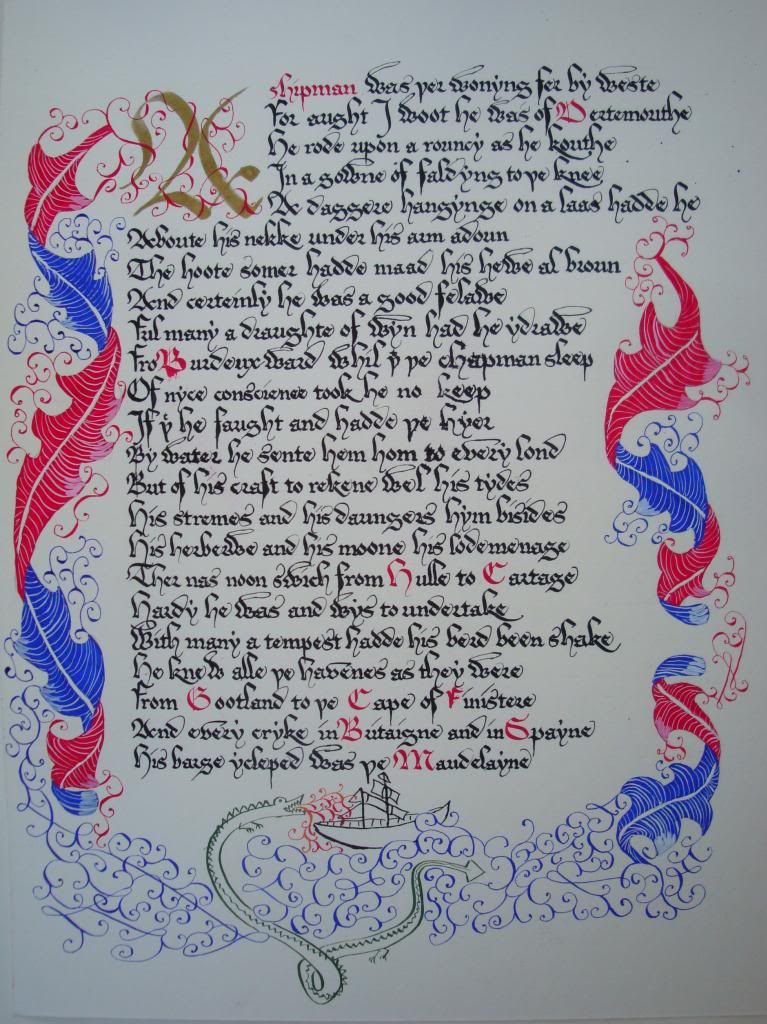 A shipman was þer wonyng fer by weste
For aught I woot he was of Dertemouthe
He rode upon a rouncy as he kouthe
In a gowne of faldyng to þe knee
Ae daggere hangynge on a laas hadde he
Aboute his nekke under his arm adoun
The hoote somer hadde maad his hewe al broun
And certeinly he was a good felawe
Ful many a draughte of wyn had he ydrawe
Fro Burdeux ward whil þ þe chapman sleep
Of nyce conscience took he no keep
If þͭ he faught and hadde þe hyer
By water he sente hem hom to every lond
But of his craft to rekene wel his tydes
His stremes and his daungers hym bisides
His herberwe and his moone his lodemenage
Ther nas noon swich from Hulle to Cartage
Hardy he was and wys to undertake
With many a tempest hadde his berd been shake
He knew alle þe havenes as they were
From Gootland to þe Cape of Finistere
And every cryke in Britaigne and in Spayne
His barge ycleped was þe Maudelayne